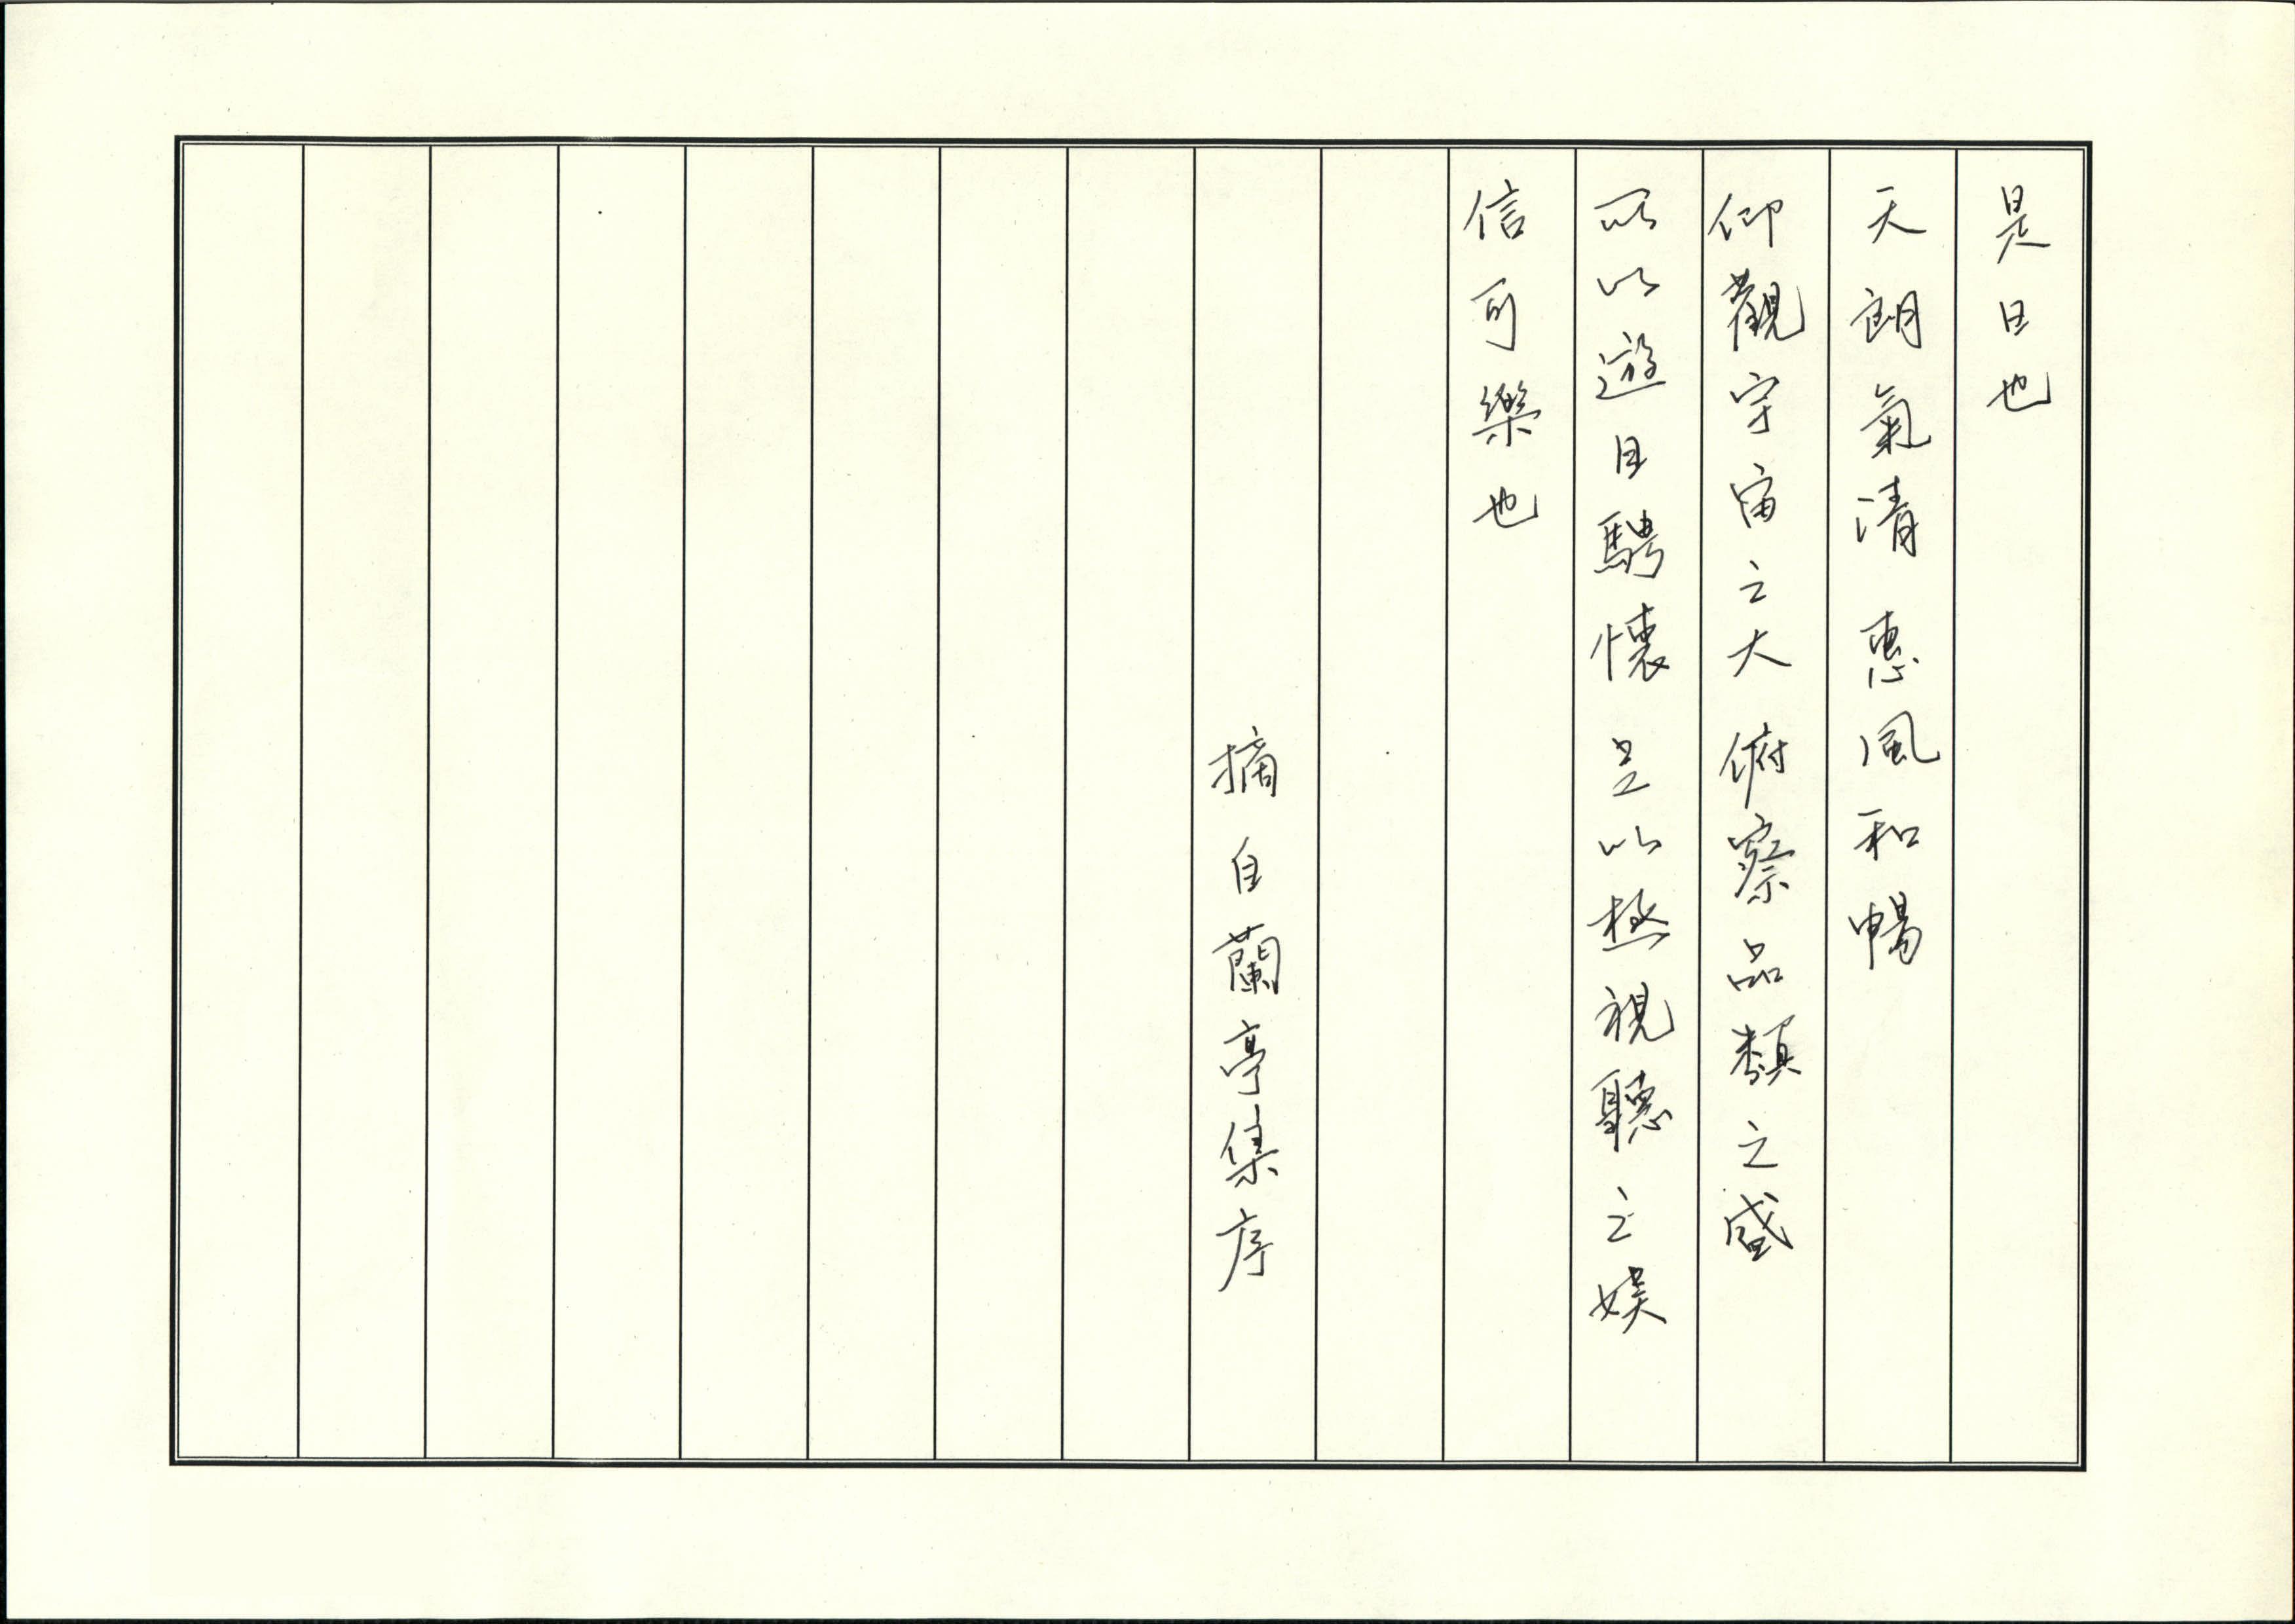 是日也
天朗氣清惠風和暢
仰觀宇宙之大俯察品類之盛
所以遊目騁懷足以極視聽之娛
信可樂也
摘自蘭亭集序